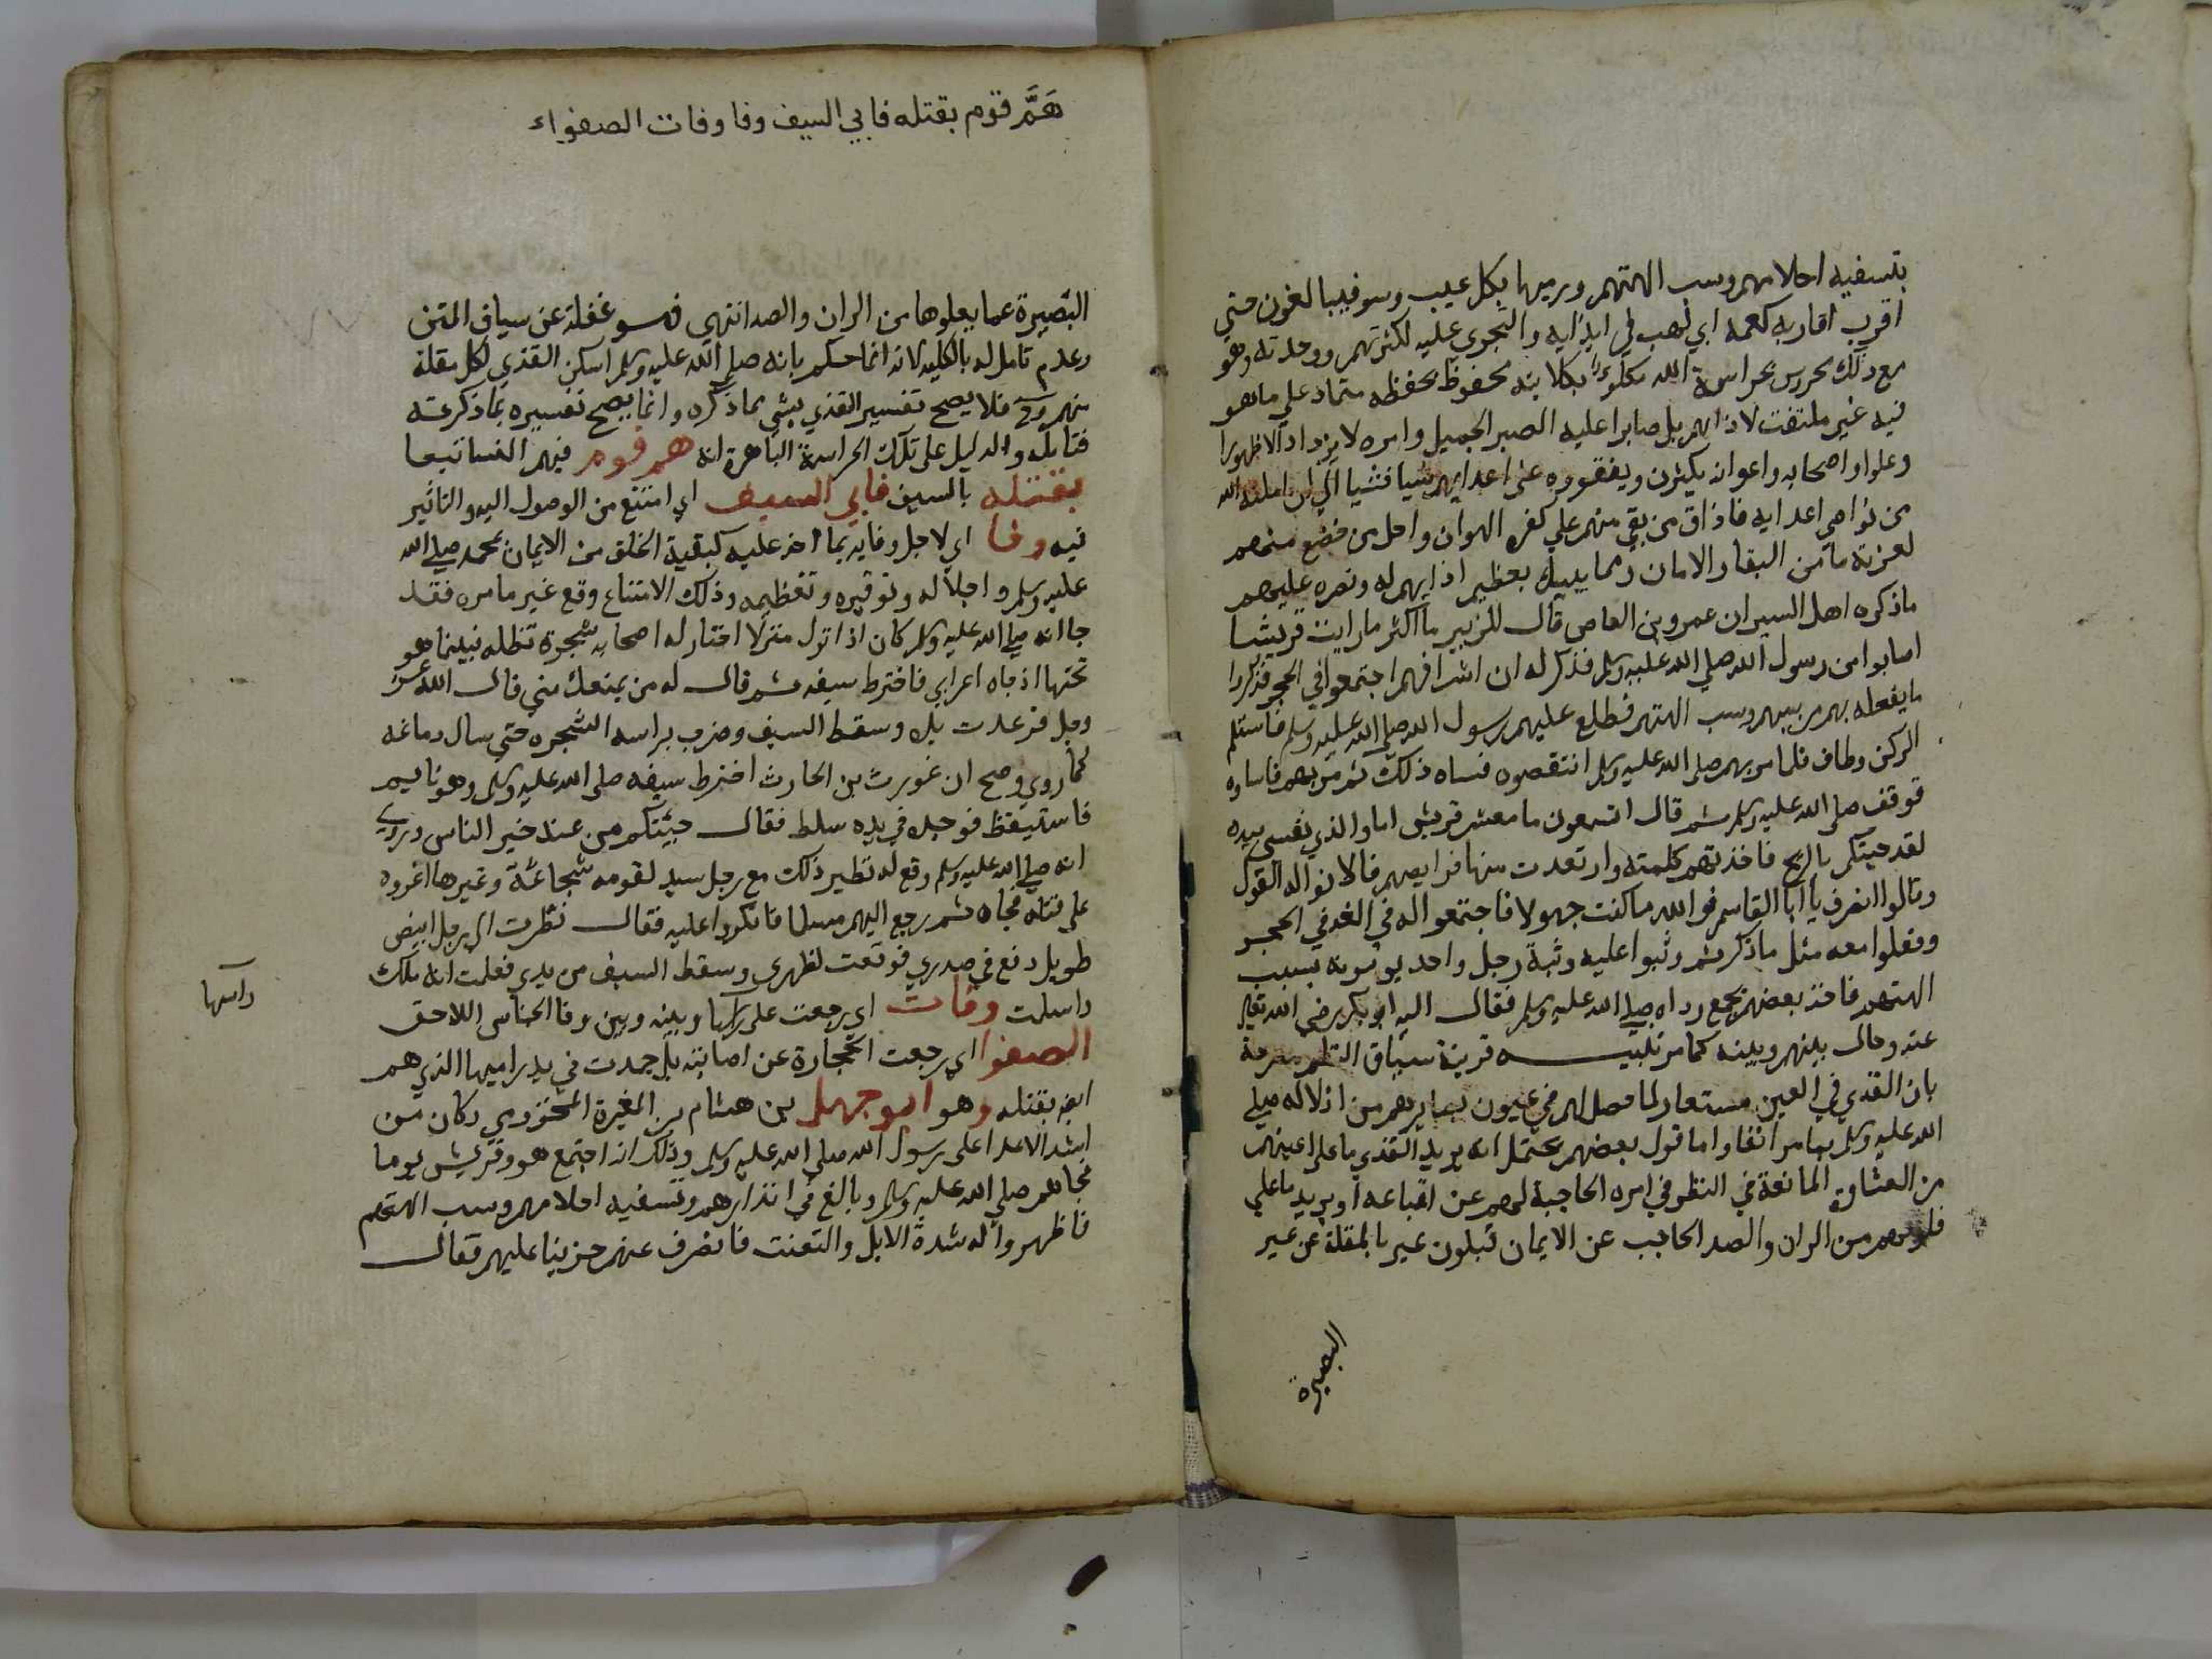 بتسفيه احلامهم وسب الهتهم ورميها بكل عيب وسو فيبالغون حتي
اقرب اقاربه كعمه ابي لهب في ايذايه والتجري عليه لكثرتهم ووحدته وهو
مع ذلك محروس بحراسة الله مكلوء بكلايته محفوظ بحفظه متماد علي ما هو
فيه غير ملتفت لاذاهم بل صابرا عليه الصبر الجميل وامره لا يزداد الا ظهورا
وعلوا واصحابه واعوانه يكثرون ويفقوره على اعدايهم شيا فشيا الي ان امكنه الله
من نواصي اعدايه فاذاق من بقي منهم علي كفره الهوان واحل من خضع منهم
لعزته مامن البقا والامان ومما يبين بعظيم اذايهم له ونصره عليهم
ما ذكره اهل السير ان عمرو بن العاص قال للزبير ما اكثر ما رايت قريشا
اصابوا من رسول الله صلي الله عليه وسلم فذكر له ان اشرافهم اجتمعوا في الحجر فذكروا
ما يفعله بهم من سبهم وسب الهتهم فطلع عليهم رسول الله صلي الله عليه وسلم فاستلم
الركن وطاف فلما مر بهم صلي الله عليه وسلم انتقصوه فساه ذلك ثم مر بهم فاساوه
فوقف صلى الله عليه وسلم ثم قال اتسمعون يا معشر قريش اما والذي نفسي بيده
لقد جيتكم بالذبح فاخذتهم كلمته وارتعدت منها فرايصهم فالانوا له القول
وقالوا انصرف يا ابا القاسم فوالله ما كنت جهولا فاجتمعوا له في الغد في الحجر
وفعلوا معه مثل ما ذكر ثم وثبوا عليه وثبة رجل واحد يوبنونه بسبب
الهتهم فاخذ بعضهم بجمع رداه صلي الله عليه وسلم فقال اليه ابو بكر رضي الله تعالي
عنه وحال بينهم وبينه كما مر تنبيه قرينة سياق النظم مصرحة
بان القذي في العين مستعار لما حصل لهم في عيون بصايرهم من اذلاله صلي
الله عليه وسلم بما مر انفا واما قول بعضهم يحتمل انه يريد القذي ما على اعينهم
من الغشاوة المانعة في النظر في امره الحاجبة لهم عن اتباعه او يريد ما علي
قلوبهم من الران والصد الحاجب عن الايمان فيكون عبر بالمقلة عن عين
البصيرة
هَمَّ قوم بقتله فابي السيف وفا وفات الصفواء
البصيرة عما يعلوها من الران والصد انتهي فهو غفلة عن سياق المتن
وعدم تامل له بالكلية لانه انما حكم بانه صلي الله عليه وسلم اسكن القذي لكل مقلة
منهم وح فلا يصح تفسير القذي بشي مما ذكره وانما يصح تفسيره بما ذكرته
فتامله والدليل على تلك الحراسة الباهرة انه هم قوم فيهم الغسا تبعا
بقتله بالسيف فابي السيف اي امتنع من الوصول اليه والتاثير
فيه وفا اي لاجل وفايه بما اخذ عليه كبقية الخلق من الايمان بمحمد صلي الله
عليه وسلم واجلاله وتوقيره وتعظيمه وذلك الامتناع وقع غير ما مره فقد
جا انه صلي الله عليه وسلم كان اذا نزل منزلا اختار له اصحابه شجرة تظله فبينما هو
تحتها اذ جاه اعرابي فاخترط سيفه ثم قال له من يمنعك مني قال الله عز
وجل فرعدت يده وسقط السيف وضرب براسه الشجره حتي سال دماغه
كما روي وصح ان غورث بن الحارث اخترط سيفه صلى الله عليه وسلم وهو نايم
فاستيقظ فوجده في يده سلط فقال جيتكم من عند خير الناس وروي
انه صلي الله عليه وسلم وقع له نظير ذلك مع رجل سيد لقومه شجاعة وغيرها اغروه
على قتله فجاه ثم رجع اليهم مسلما فانكروا عليه فقال نظرت الي رجل ابيض
طويل دفع في صدري فوقعت لظهري وسقط السيف من يدي فعلمت انه ملك
واسلمت وفات اي رجعت على راسها وبينه وبين وفا الجناس اللاحق
راسها
الصفوا اي رجعت الحجارة عن اصابته بل جمدت في يد راميها الذي هم
ايضا بقتله وهو ابو جهل بن هشام بن المغيرة المخزومي وكان من
اشد الاعدا على رسول الله صلى الله عليه وسلم وذلك انه اجتمع هو وقريش يوما
فجاهم صلي الله عليه وسلم وبالغ في انذارهم وتسفيه احلامهم وسب الهتهم
فاظهروا له شدة الابا والتعنت فانصرف عنهم حزينا عليهم فقال